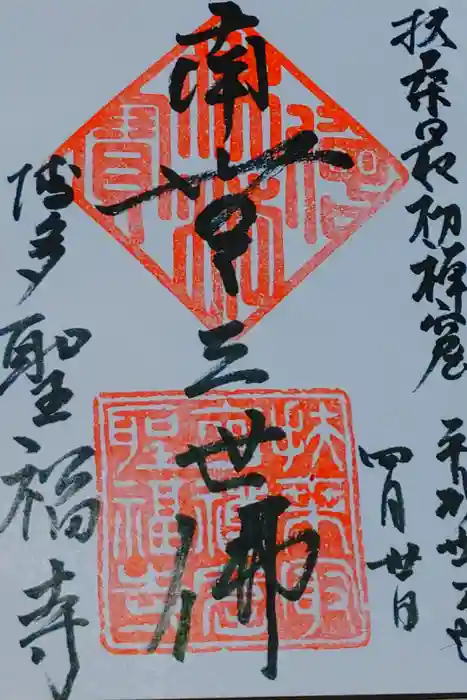 扶桑最初禅窟
平成廿
四月廿日
南無三世佛
博多聖福寺
佛法僧寶
扶桑最
初禅窟
聖福寺